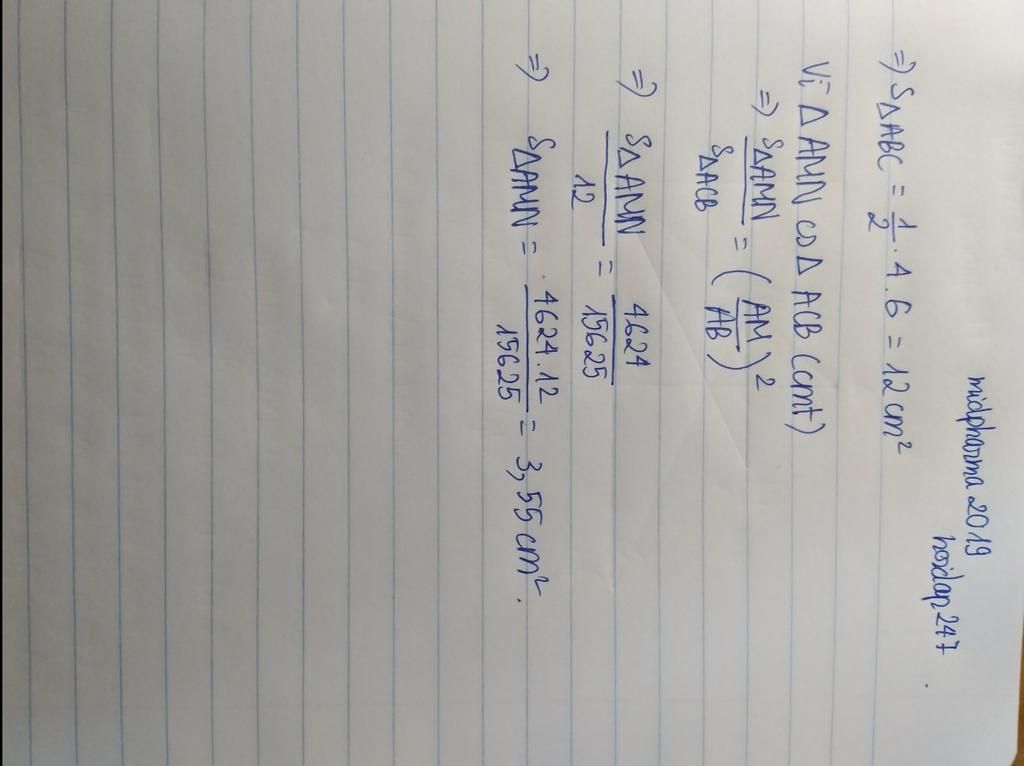 midpharma 2019
hoidap247
=) SΔABC = 1/2 . 4 . 6 = 12 cm²
Vì Δ AMN ∽ Δ ACB (cmt)
=) SΔAMN/SΔACB = (AM/AB)²
=) SΔAMN/12 = 4624/15625
=) SΔAMN = 4624.12/15625 = 3,55 cm².